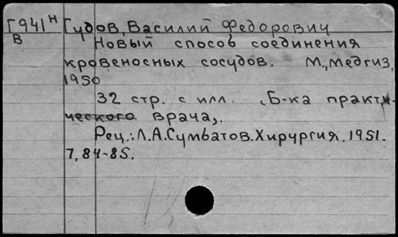 Г941н Гудов, Василий Федорович
В Новый способ соединения
кровеносных сосудов. М., Медгиз,
1950
32 стр. с илл. (Б-ка практи-
ческого врача).
Рец.: Л.А.Сумбатов. Хирургия. 1951.
7, 84-85.